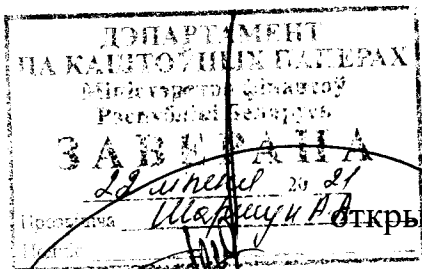 ДЭПАРТАМЕНТ
ПА КАШТОЎНЫХ ПАПЕРАХ
Міністэрства фінансаў
Рэспублікі Беларусь
ЗАВЕРАНА
22 ліпеня 20 21
Прозвішча Шаршун АА
Подпіс
откры